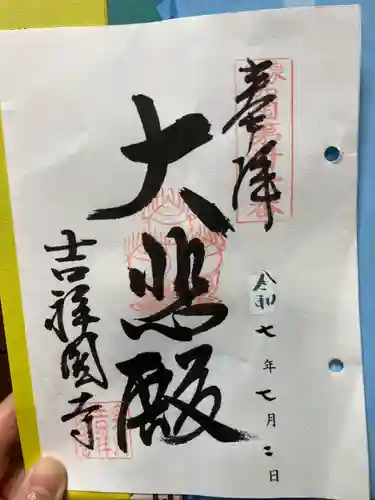 奉拝
大悲殿
令和七年七月二日
吉祥國寺